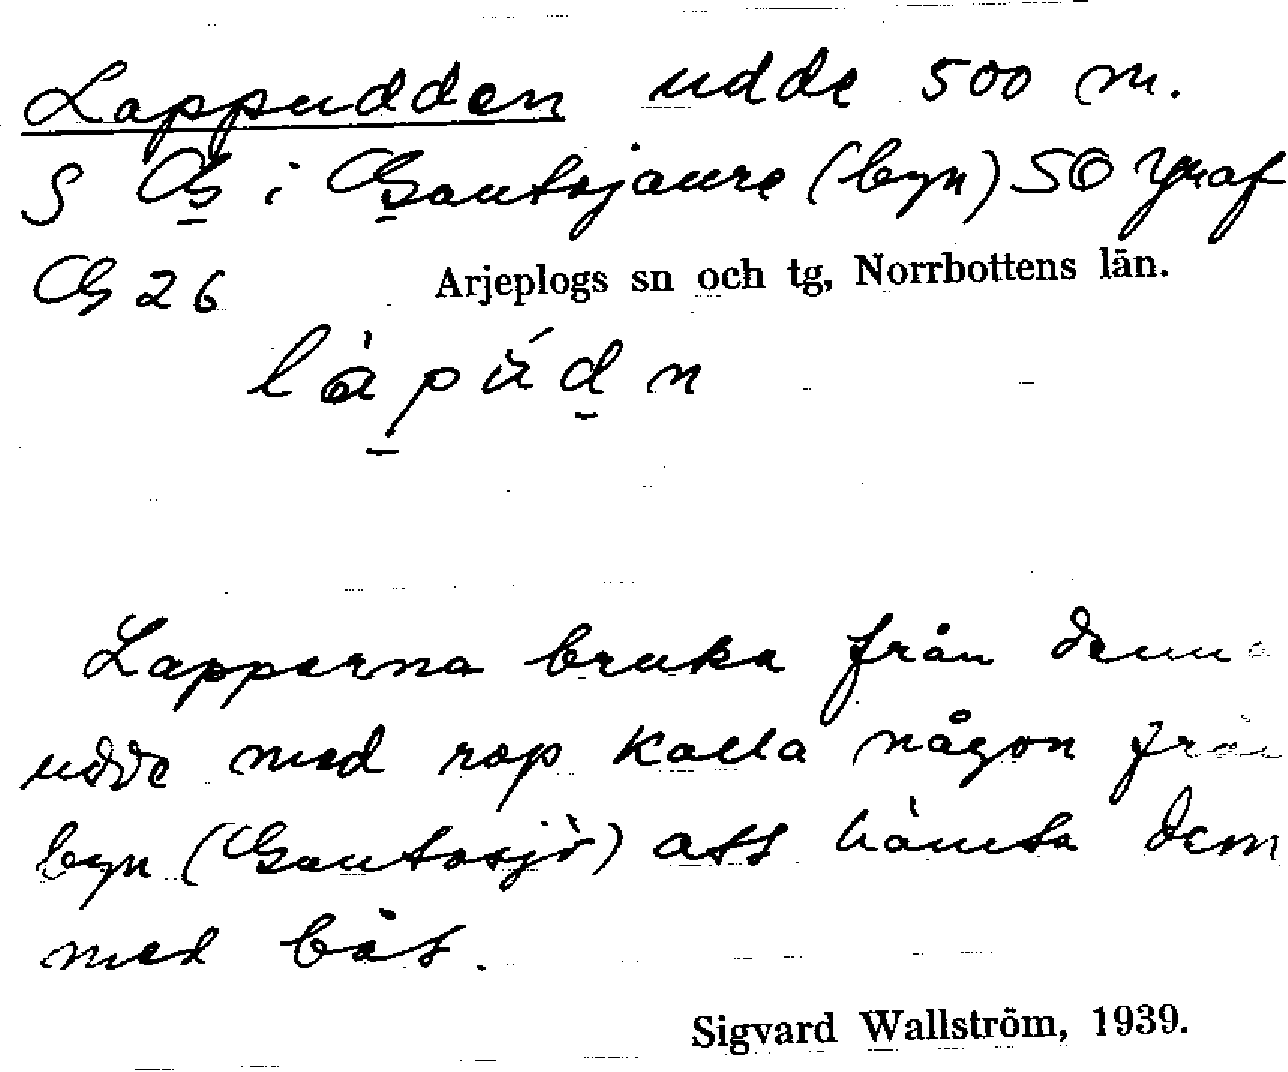 Lappudden udde 500 m.
S G i Gautosjaure (byn) SO
G 26 Arjeplogs sn och tg, Norrbottens län.
Lapparna bruka från denna
udde med rop kalla någon från
byn (Gautosjö) att hämta dem
med båt.
Sigvard Wallström, 1939.